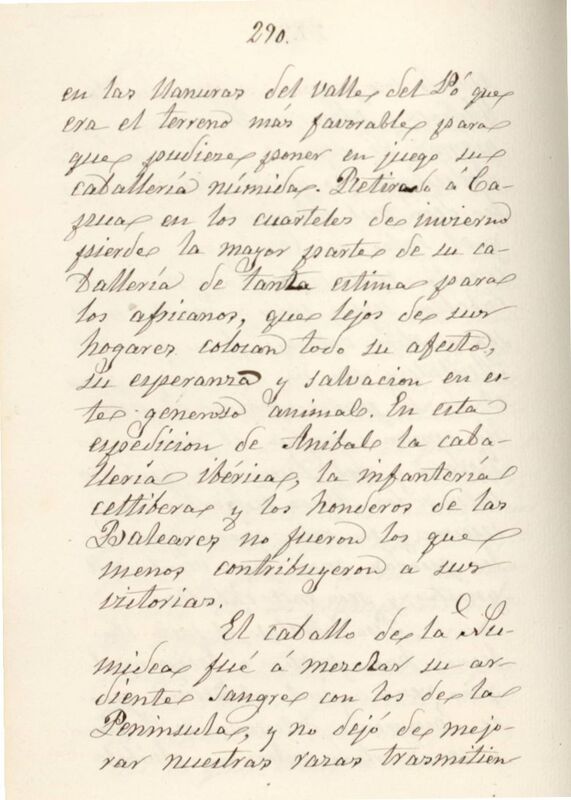 290.
en las llanuras del valle del Pó que
era el terreno más favorable para
que pudiese poner en juego su
caballería númida. Retirado á Ca-
pua en los cuarteles de invierno
pierde la mayor parte de su ca-
ballería de tanta estima para
los africanos, que lejos de sus
hogares colocan todo su afecto,
su esperanza y salvacion en es-
te generoso animal. En esta
expedicion de Anibal la caba-
llería ibérica, la infantería
celtibera y los honderos de las
Baleares no fueron los que
menos contribuyeron á sus
vitorias.
El caballo de la Nu-
midea fué á mezclar su ar-
diente sangre con los de la
Peninsula, y no dejó de mejo-
rar nuestras razas trasmitien